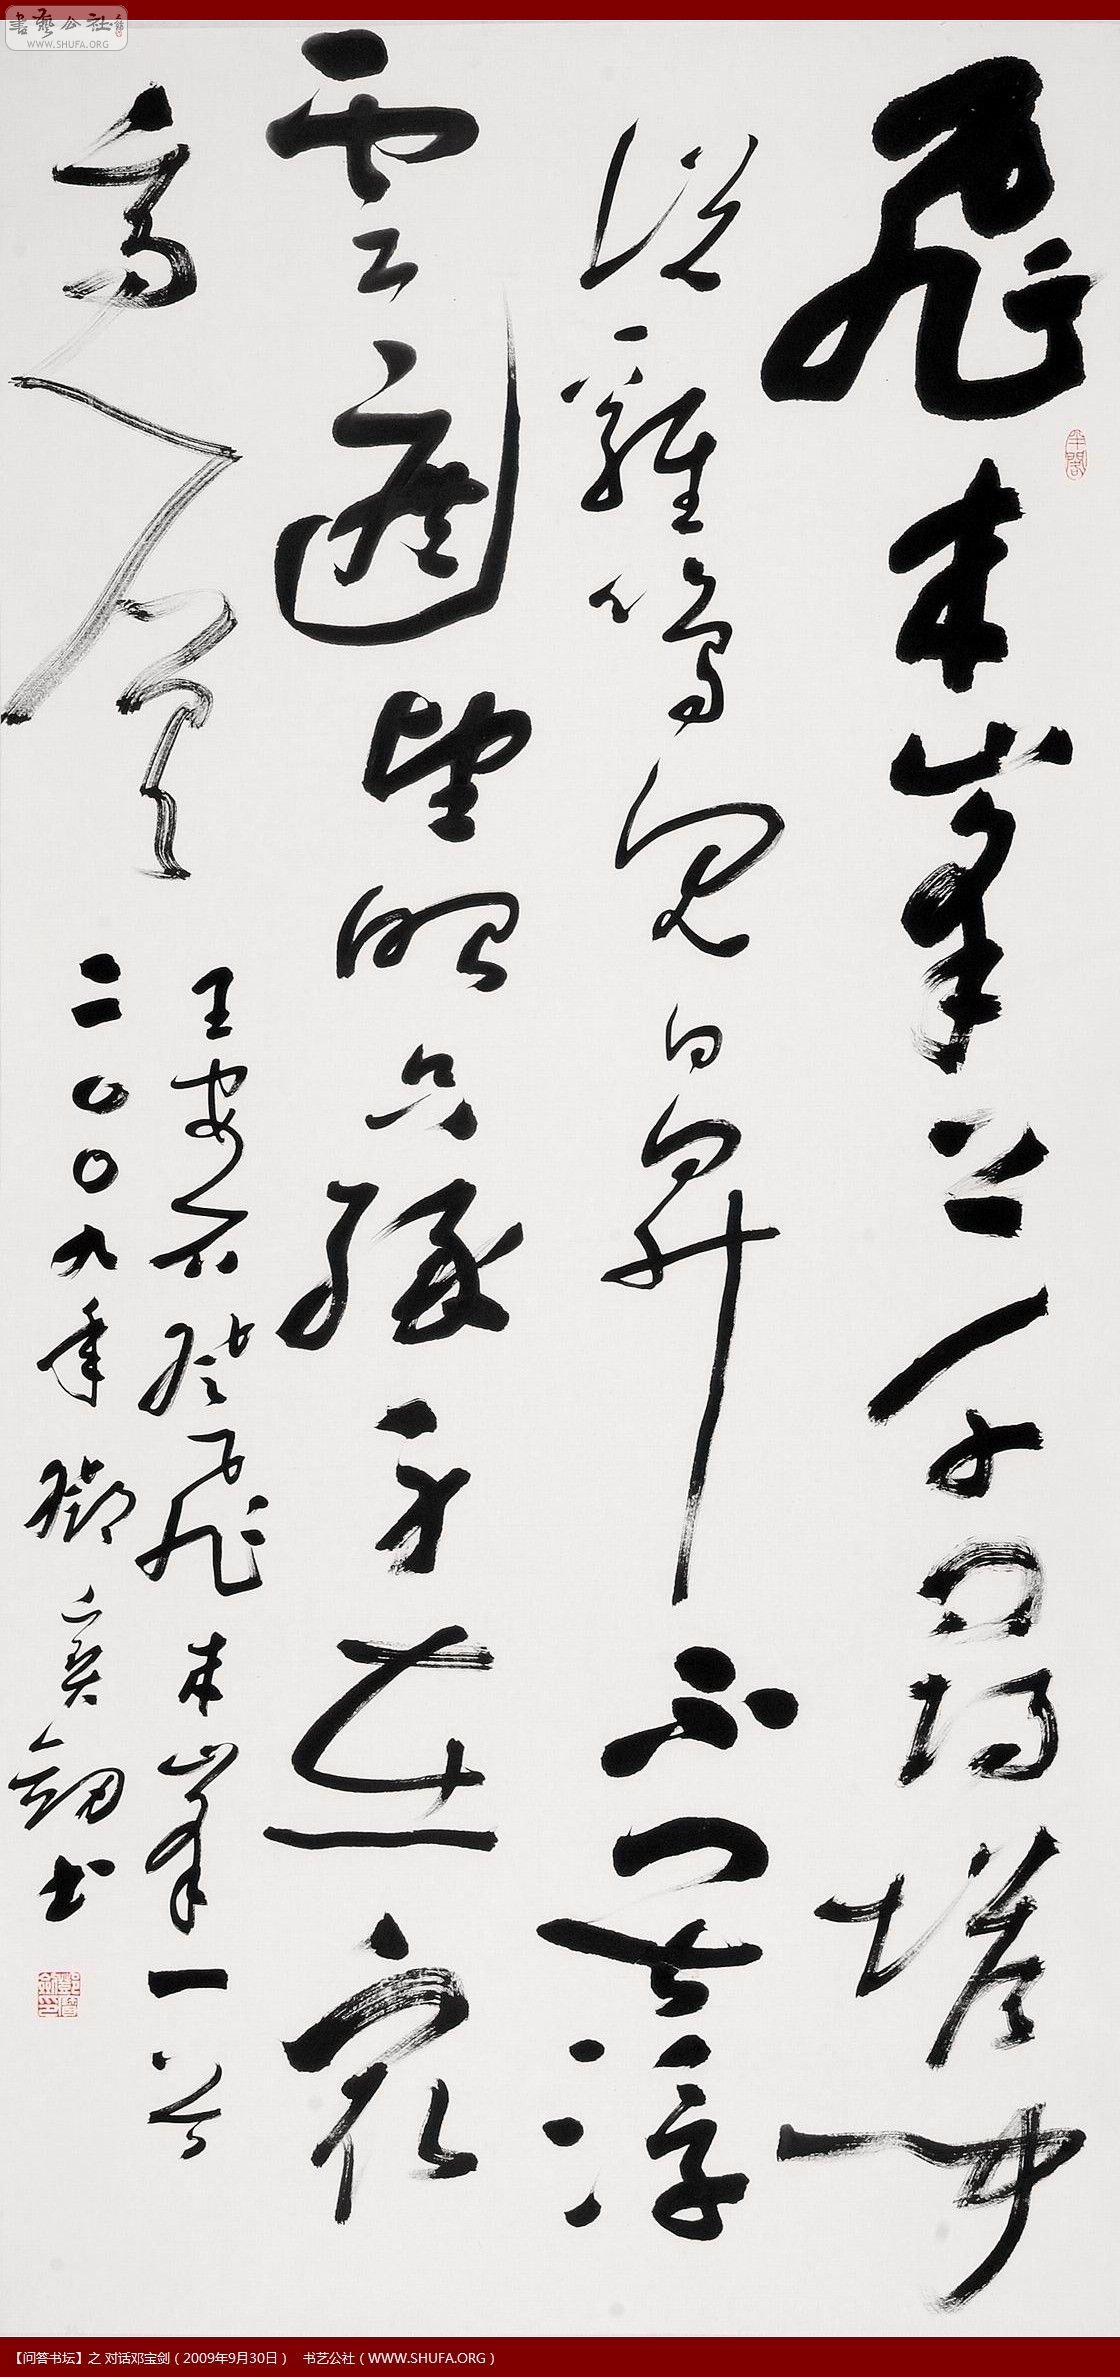 書藝公社
WWW.SHUFA.ORG
飛来峯上千尋塔聞
説雞鳴見日昇不畏浮
雲遮望眼只緣身在最
高層
王安石登飛来峯一首
二〇〇九年鄧寶劍书
【问答书坛】之 对话邓宝剑（2009年9月30日） 书艺公社（WWW.SHUFA.ORG）